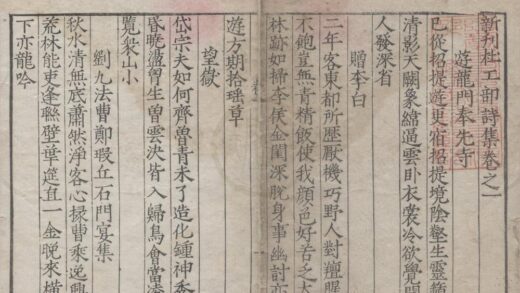 新刊杜工部詩集卷之一
遊龍門奉先寺
已從招提遊更宿招提境陰壑生靈籟
清影天闕象緯逼雲卧衣裳冷欲覺
人發深省
贈李白
二年客東都所歷厭機巧野人對羶腥
不飽豈無青精飯使我顏色好苦乏大
林跡如掃李侯金閨深脫身事幽討亦
遊方期拾瑤草
望嶽
岱宗夫如何齊魯青未了造化鍾神秀
昏曉盪胷生曾雲決眥入歸鳥會當凌
覽衆山小
劉九法曹鄭瑕丘石門宴集
秋水清無底蕭然淨客心掾曹乘逸興
荒林能吏逢聯壁華筵直一金晚來橫
下亦龍吟